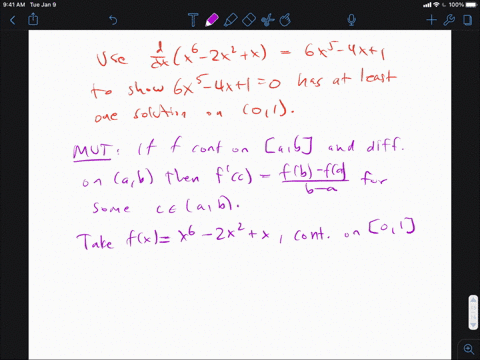 9:41 AM Tue Jan 9
100%
Use d/dx (x⁶ - 2x² + x) = 6x⁵ - 4x + 1
to show 6x⁵ - 4x + 1 = 0 has at least
one solution on (0,1).
MVT: if f cont on [a,b] and diff.
on (a,b) then f'(c) = f(b) - f(a) / b - a for
some c∈(a,b).
Take f(x) = x⁶ - 2x² + x, cont. on [0,1]